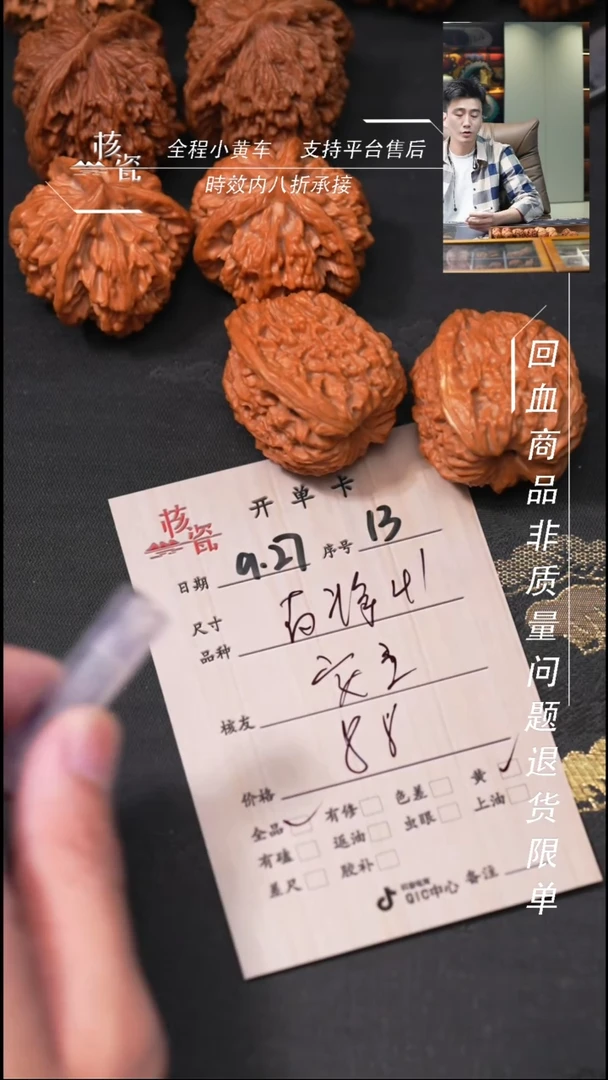 核瓷
全程小黄车 支持平台售后
時效内八折承接
回血商品非质量问题退货限单
核瓷
开单卡
日期 9.27 序号 13
尺寸
品种
核友
88
价格
全品 有修 色差 黄
有磕 返油 虫眼 上油
差尺 胶补
QIC中心 备注